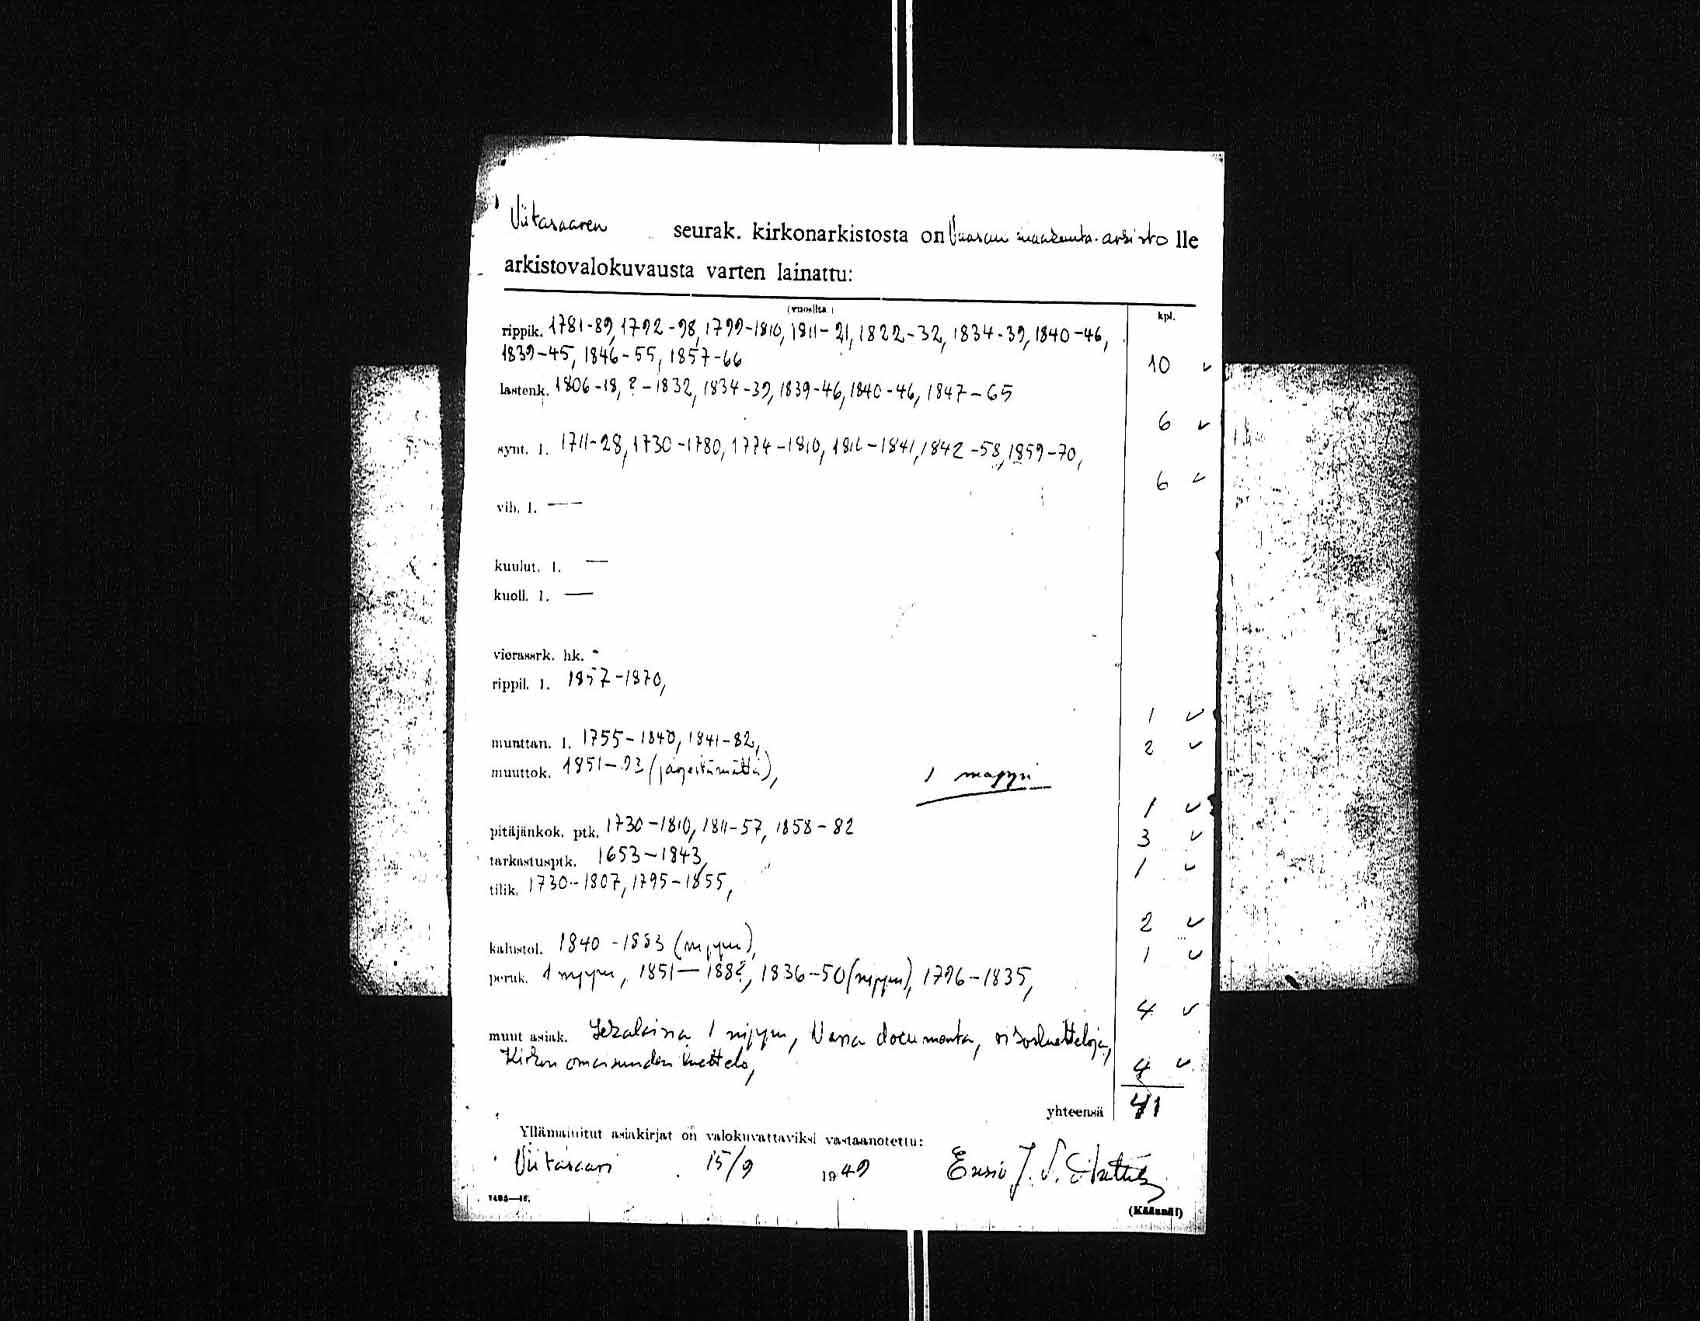 Viitasaaren seurak. kirkonarkistosta on Vaasan maakunta-arkisto lle
arkistovalokuvausta varten lainattu:
(vuosilta) kpl.
rippik. 1781-89, 1792-98, 1799-1810, 1811-21, 1822-32, 1834-39, 1840-46,
1839-45, 1846-55, 1857-66 10
lastenk. 1806-18, ?-1832, 1834-39, 1839-46, 1840-46, 1847-65
6
synt. l. 1711-28, 1730-1780, 1774-1810, 1811-1841, 1842-58, 1859-70,
6
vih. l. —
kuulut. l. —
kuoll. l. —
vierassrk. hk. -
rippil. l. 1857-1870,
1
muuttan. l. 1755-1840, 1841-82,
2
muuttok. 1851-93 (järjestämättä), 1 mappi
1
pitäjänkok. ptk. 1730-1810, 1811-57, 1858-82
3
tarkastusptk. 1653-1843,
1
tilik. 1730-1807, 1795-1855,
2
kalustol. 1840-1883 (nippu),
1
peruk. 1 nippu, 1851-188?, 1836-50 (nippu), 1796-1835,
4
muut asiak. Sekalaisia 1 nippu, Varia documenta,
Kirkon omaisuuden luettelo, 4
yhteensä 41
Yllämainitut asiakirjat on valokuvattaviksi vastaanotettu:
Viitasaari 15/9 1949 Ensio J. S.
(Käännä!)